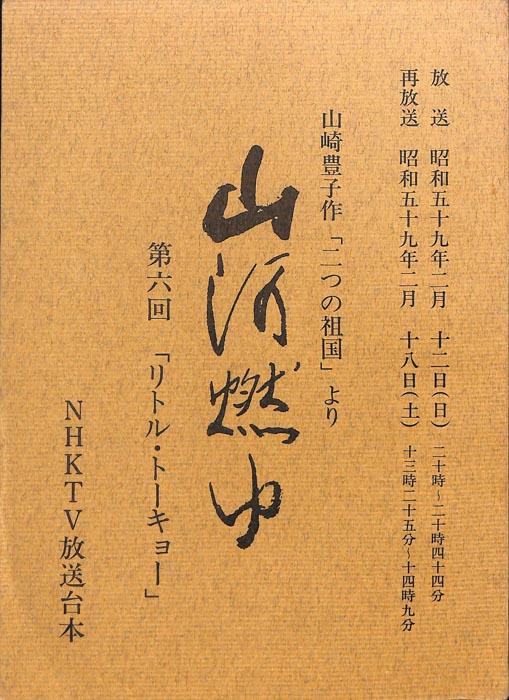 放送 昭和五十九年二月 十二日(日) 二十時~二十時四十四分
再放送 昭和五十九年二月 十八日(土) 十三時二十五分~十四時九分
山崎豊子作「二つの祖国」より
山河燃ゆ
第六回 「リトル・トーキョー」
NHKTV放送台本